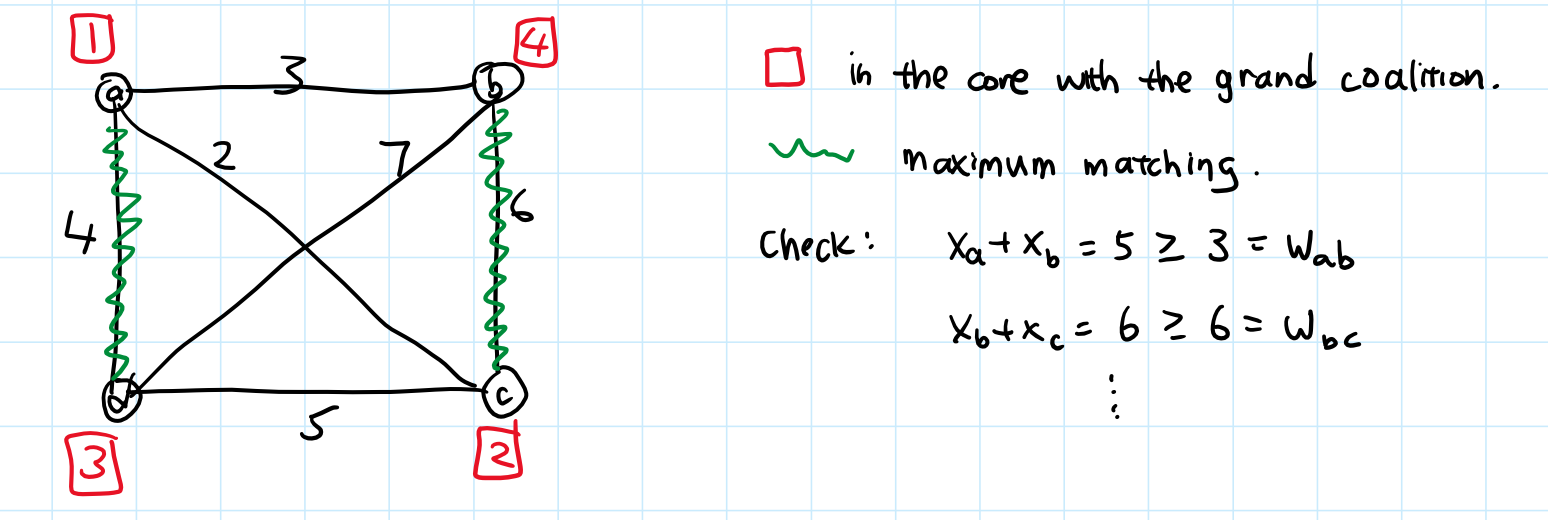 1
4
a
3
b
2
7
4
6
d
5
c
3
2
in the core with the grand coalition.
maximum matching.
Check: xa + xb = 5 ≥ 3 = wab
xb + xc = 6 ≥ 6 = wbc
⋮